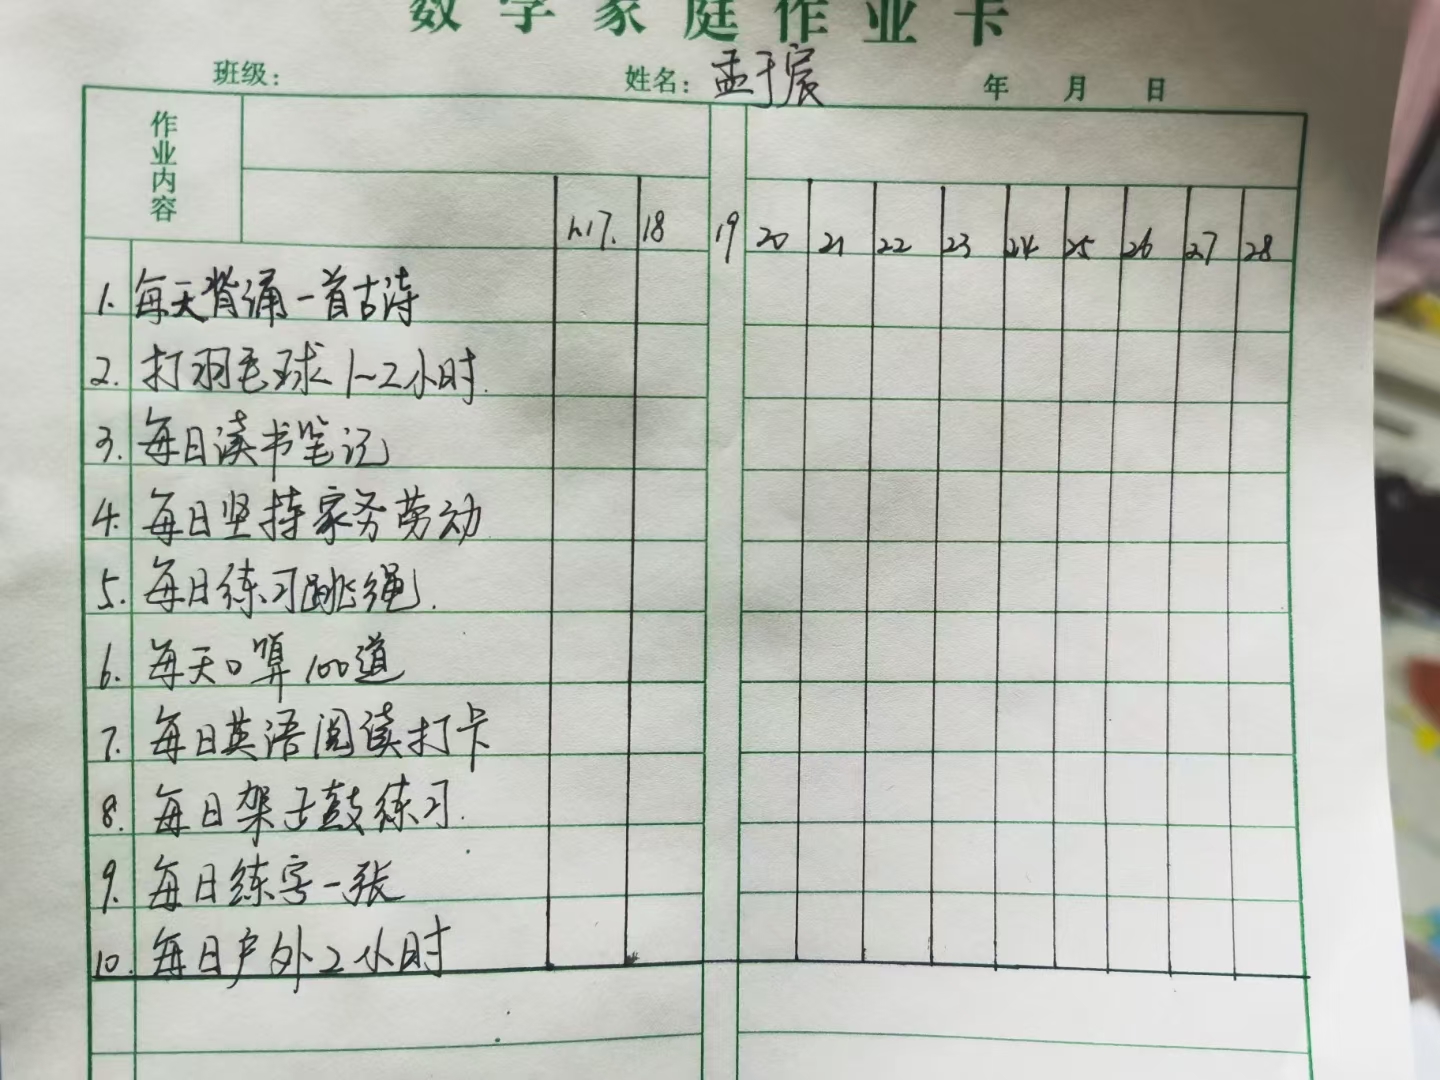 数学家庭作业卡
班级： 姓名：孟于宸 年 月 日
作业内容
17. 18 19 20 21 22 23 24 25 26 27 28
1. 每天背诵一首古诗
2. 打羽毛球1~2小时.
3. 每日读书笔记
4. 每日坚持家务劳动
5. 每日练习跳绳.
6. 每天口算100道
7. 每日英语阅读打卡
8. 每日架子鼓练习.
9. 每日练字一张
10. 每日户外2小时